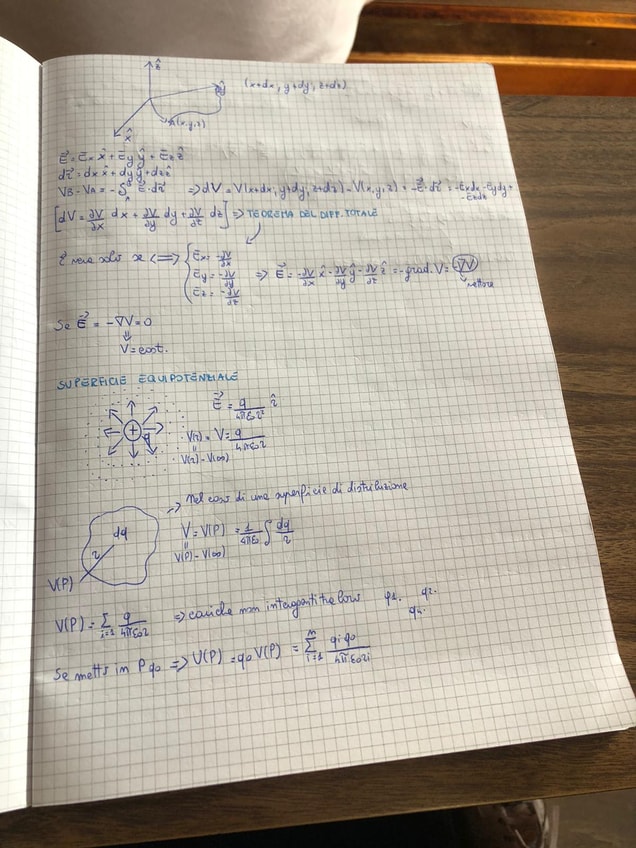 ẑ
ŷ (x+dx, y+dy, z+dz)
A(x,y,z)
x̂
E⃗ = Ex x̂ + Ey ŷ + Ez ẑ
dr⃗ = dx x̂ + dy ŷ + dz ẑ
VB - VA = -∫ E⃗·dr⃗ ⇒ dV = V(x+dx, y+dy, z+dz) - V(x,y,z) = -E⃗·dr⃗ = -Exdx - Eydy +
- Ezdz
[dV = ∂V/∂x dx + ∂V/∂y dy + ∂V/∂z dz] ⇒ TEOREMA DEL DIFF. TOTALE
È vera solo se ⟺ { Ex = -∂V/∂x
Ey = -∂V/∂y
Ez = -∂V/∂z
⇒ E⃗ = -∂V/∂x x̂ - ∂V/∂y ŷ - ∂V/∂z ẑ = -grad. V = -∇V
vettore
Se E⃗ = -∇V = 0
⇓
V = cost.
SUPERFICIE EQUIPOTENZIALE
+ q
E⃗ = q/4πε0r² r̂
V(r) = V = q/4πε0r
V(r) - V(∞)
→ Nel caso di una superficie di distribuzione
dq
r
V(P)
V = V(P) = 1/4πε0 ∫ dq/r
V(P) - V(∞)
V(P) = Σ i=1 q/4πε0r ⇒ cariche non interagenti tra loro q1. q2.
q4.
Se metto in P q0 ⇒ U(P) = q0 V(P) = Σ i=1 n qi q0/4πε0ri